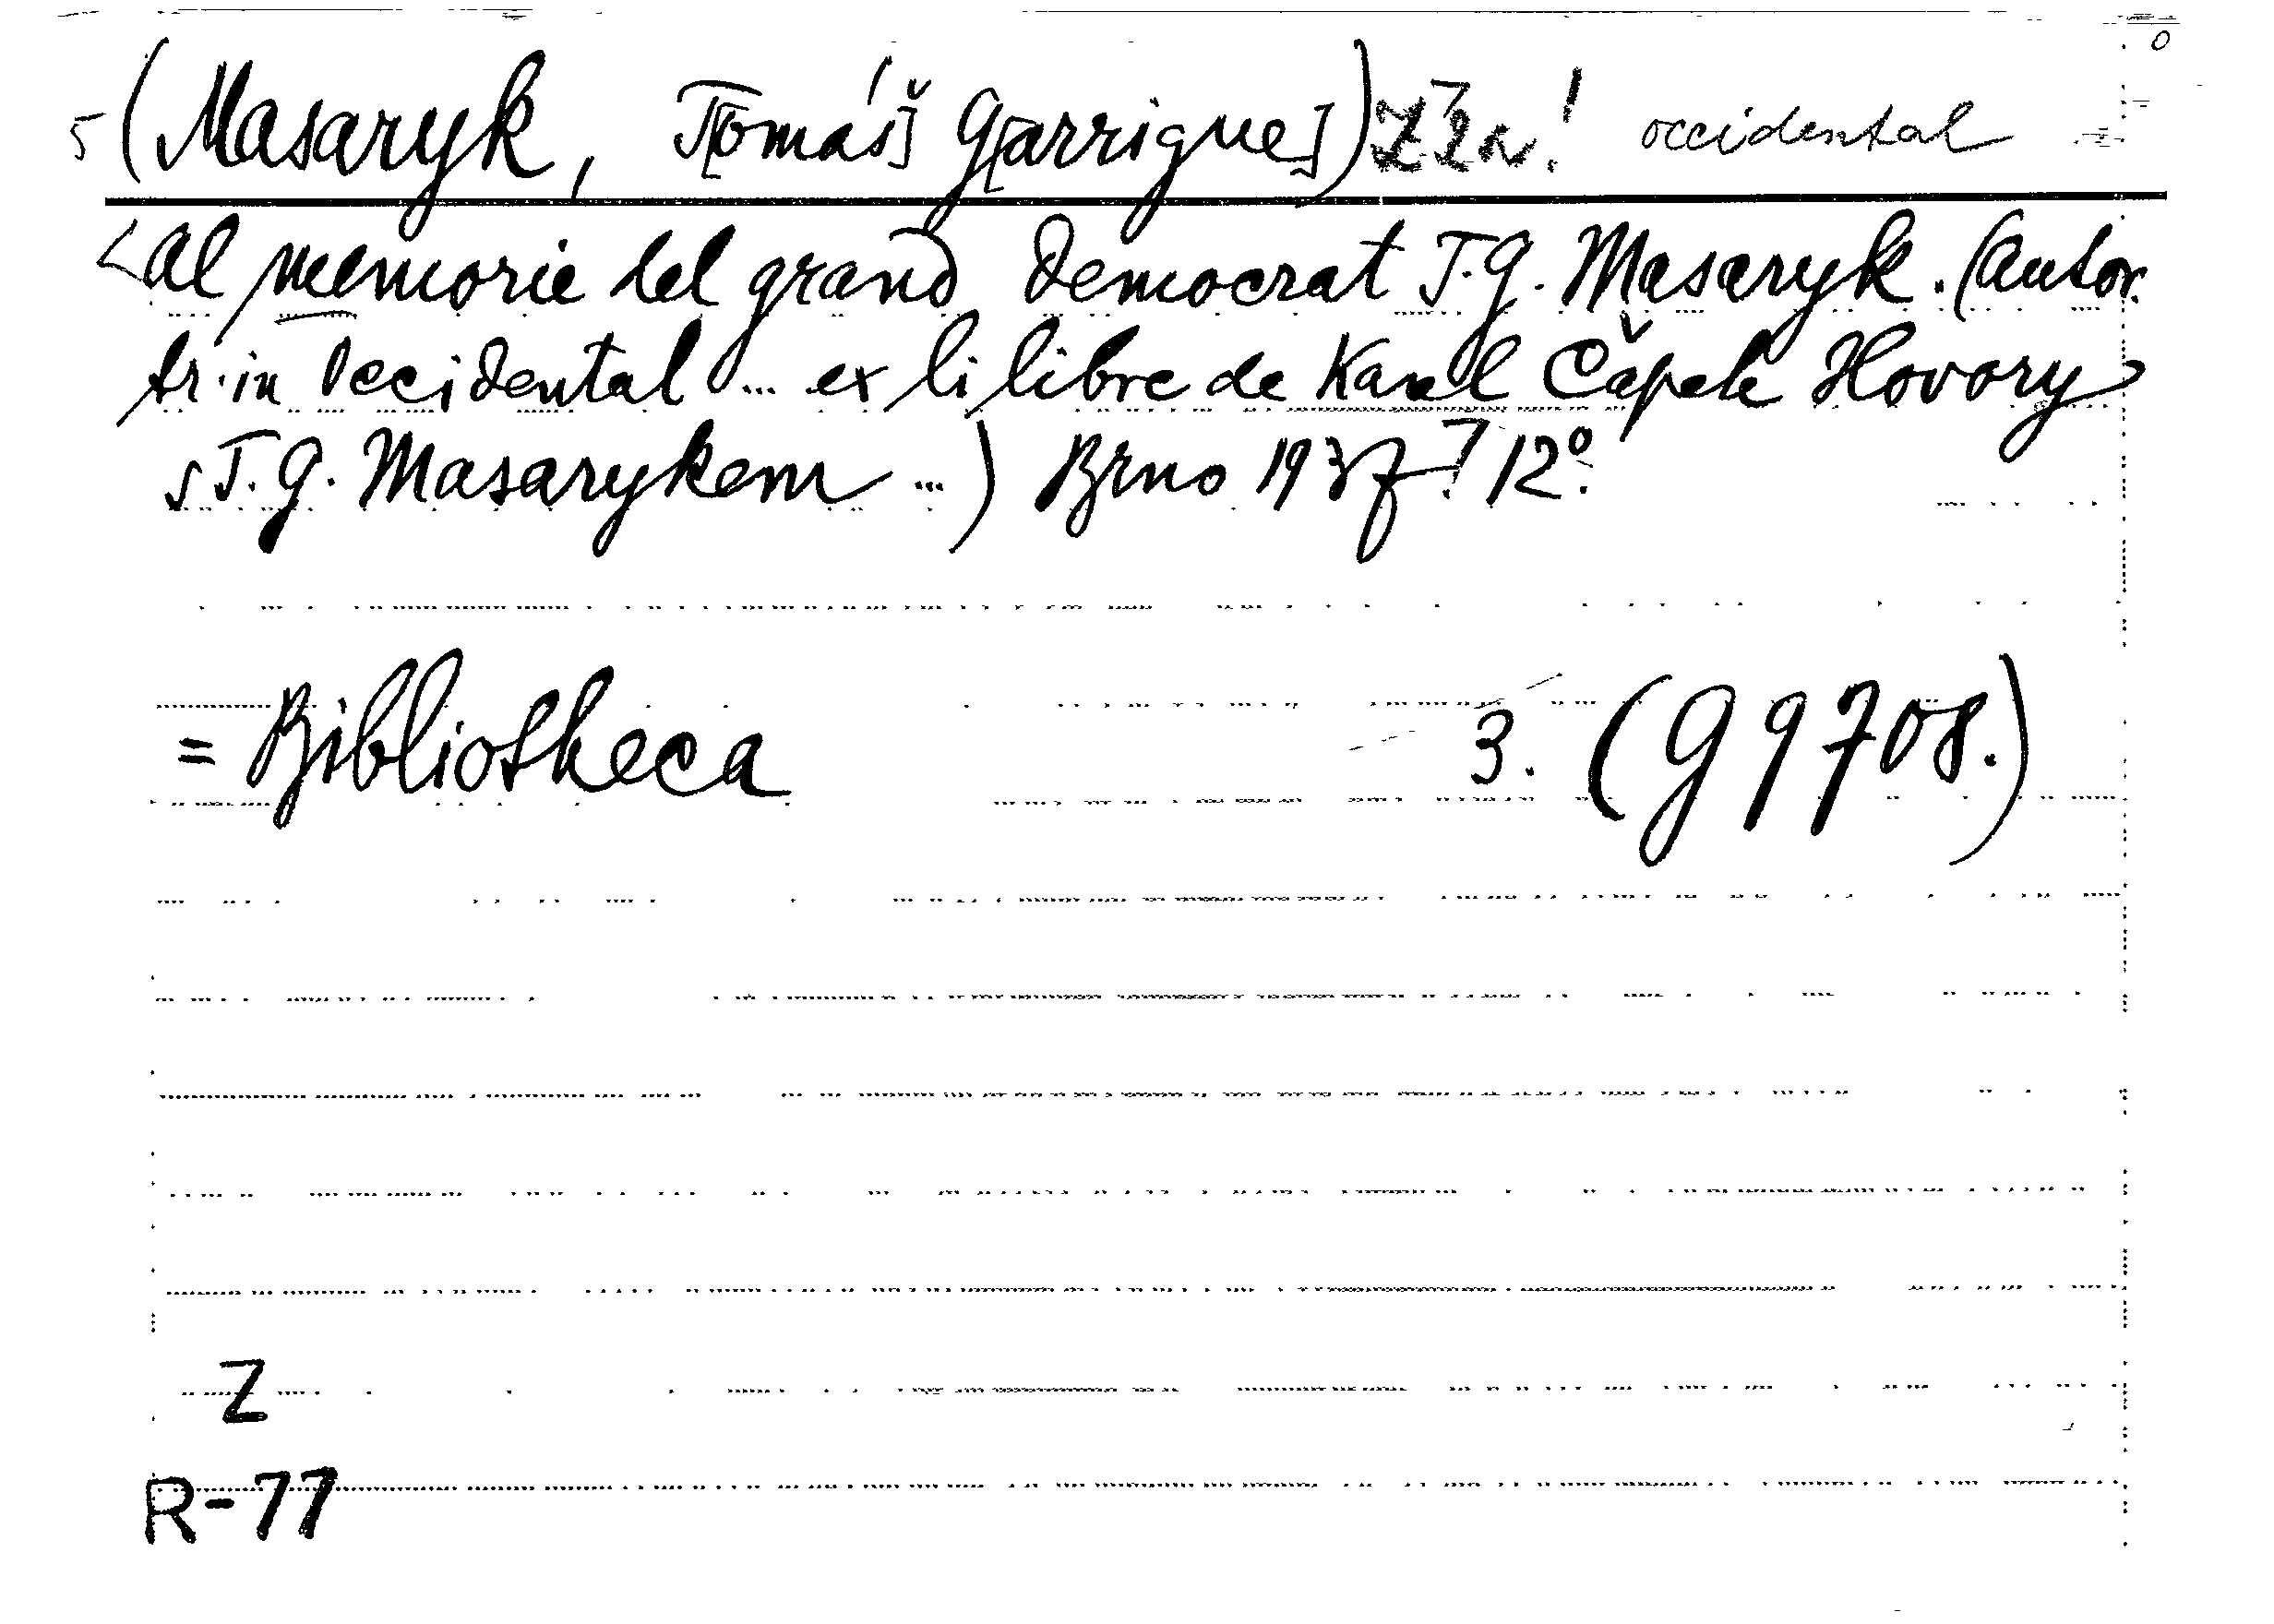 5 (Masaryk, T[omáš] G[arrigue]) ! occidental
<Al memorie del grand democrat T. G. Masaryk. (Autor.
tr. in Occidental ... ex li libre de Karel Čapek Hovory
s T. G. Masarykem ...) Brno 1937. 12°.
= Bibliotheca 3. (G 9708.)
Z
R-77